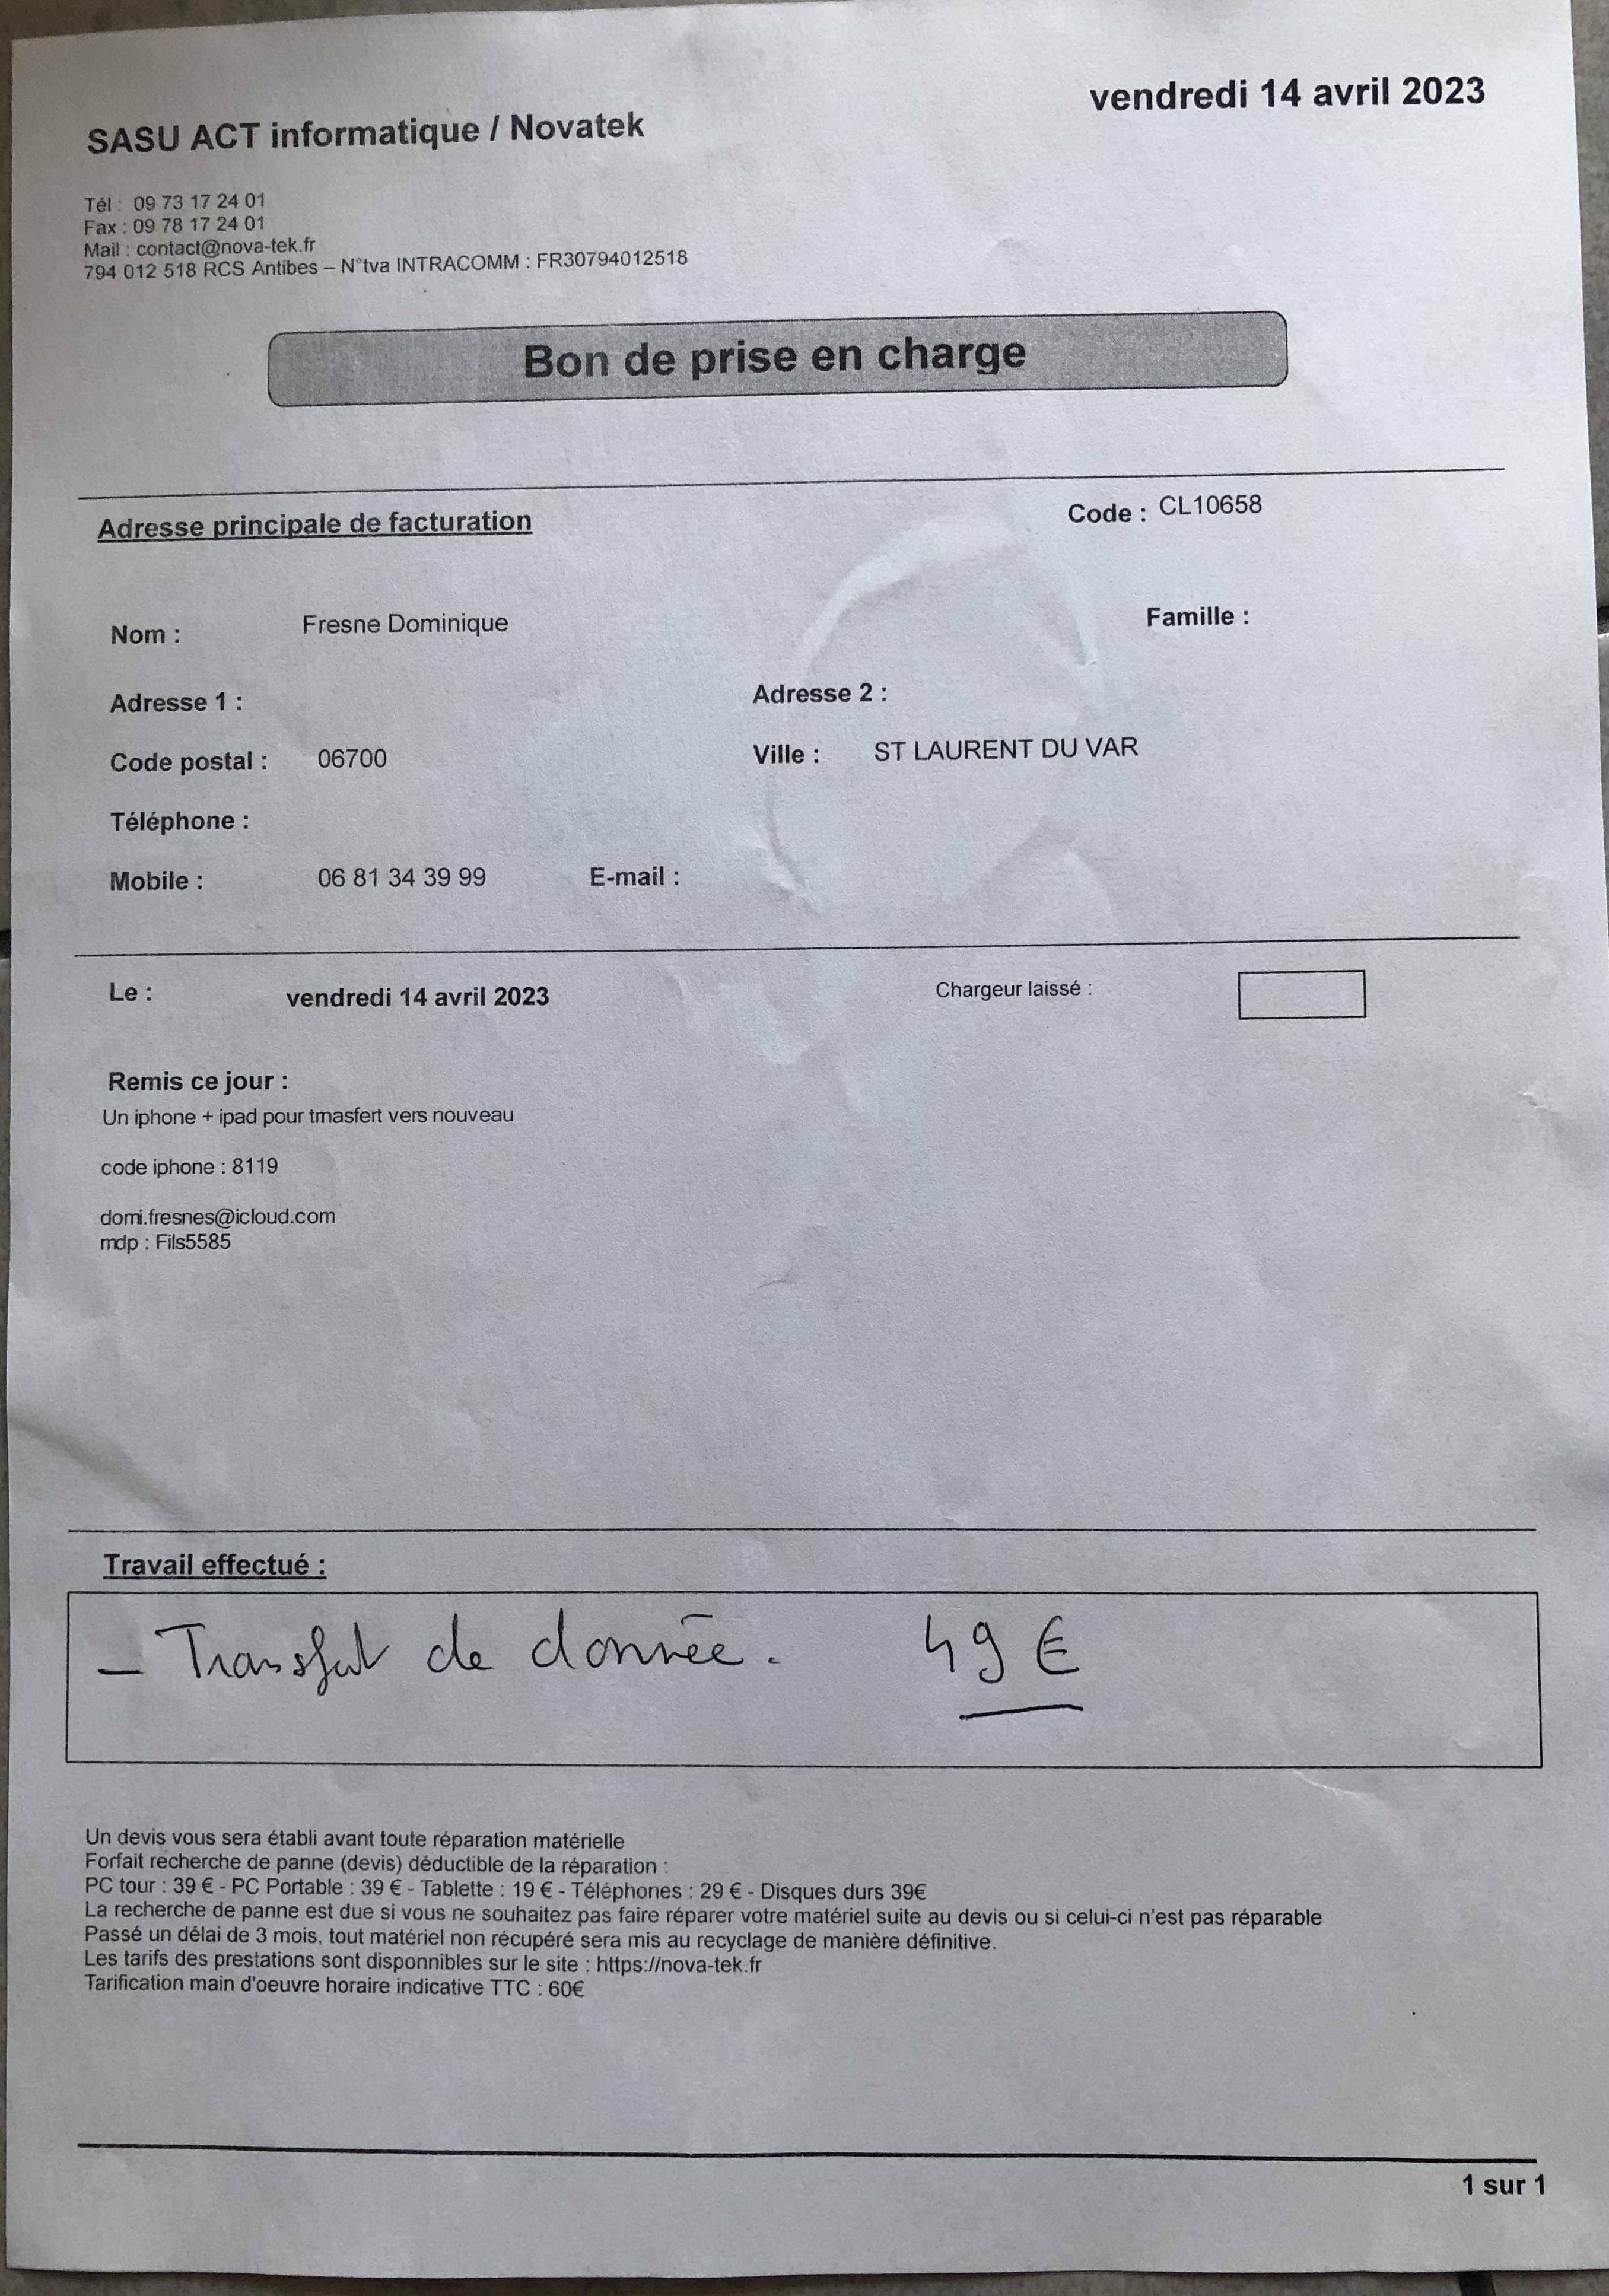 vendredi 14 avril 2023
SASU ACT informatique / Novatek
Tél : 09 73 17 24 01
Fax : 09 78 17 24 01
Mail : contact@nova-tek.fr
794 012 518 RCS Antibes – N°tva INTRACOMM : FR30794012518
Bon de prise en charge
Adresse principale de facturation Code : CL10658
Nom : Fresne Dominique Famille :
Adresse 1 : Adresse 2 :
Code postal : 06700 Ville : ST LAURENT DU VAR
Téléphone :
Mobile : 06 81 34 39 99 E-mail :
Le : vendredi 14 avril 2023 Chargeur laissé :
Remis ce jour :
Un iphone + ipad pour tmasfert vers nouveau
code iphone : 8119
domi.fresnes@icloud.com
mdp : Fils5585
Travail effectué :
- Transfert de donnée. 49 €
Un devis vous sera établi avant toute réparation matérielle
Forfait recherche de panne (devis) déductible de la réparation :
PC tour : 39 € - PC Portable : 39 € - Tablette : 19 € - Téléphones : 29 € - Disques durs 39€
La recherche de panne est due si vous ne souhaitez pas faire réparer votre matériel suite au devis ou si celui-ci n'est pas réparable
Passé un délai de 3 mois, tout matériel non récupéré sera mis au recyclage de manière définitive.
Les tarifs des prestations sont disponnibles sur le site : https://nova-tek.fr
Tarification main d'oeuvre horaire indicative TTC : 60€
1 sur 1